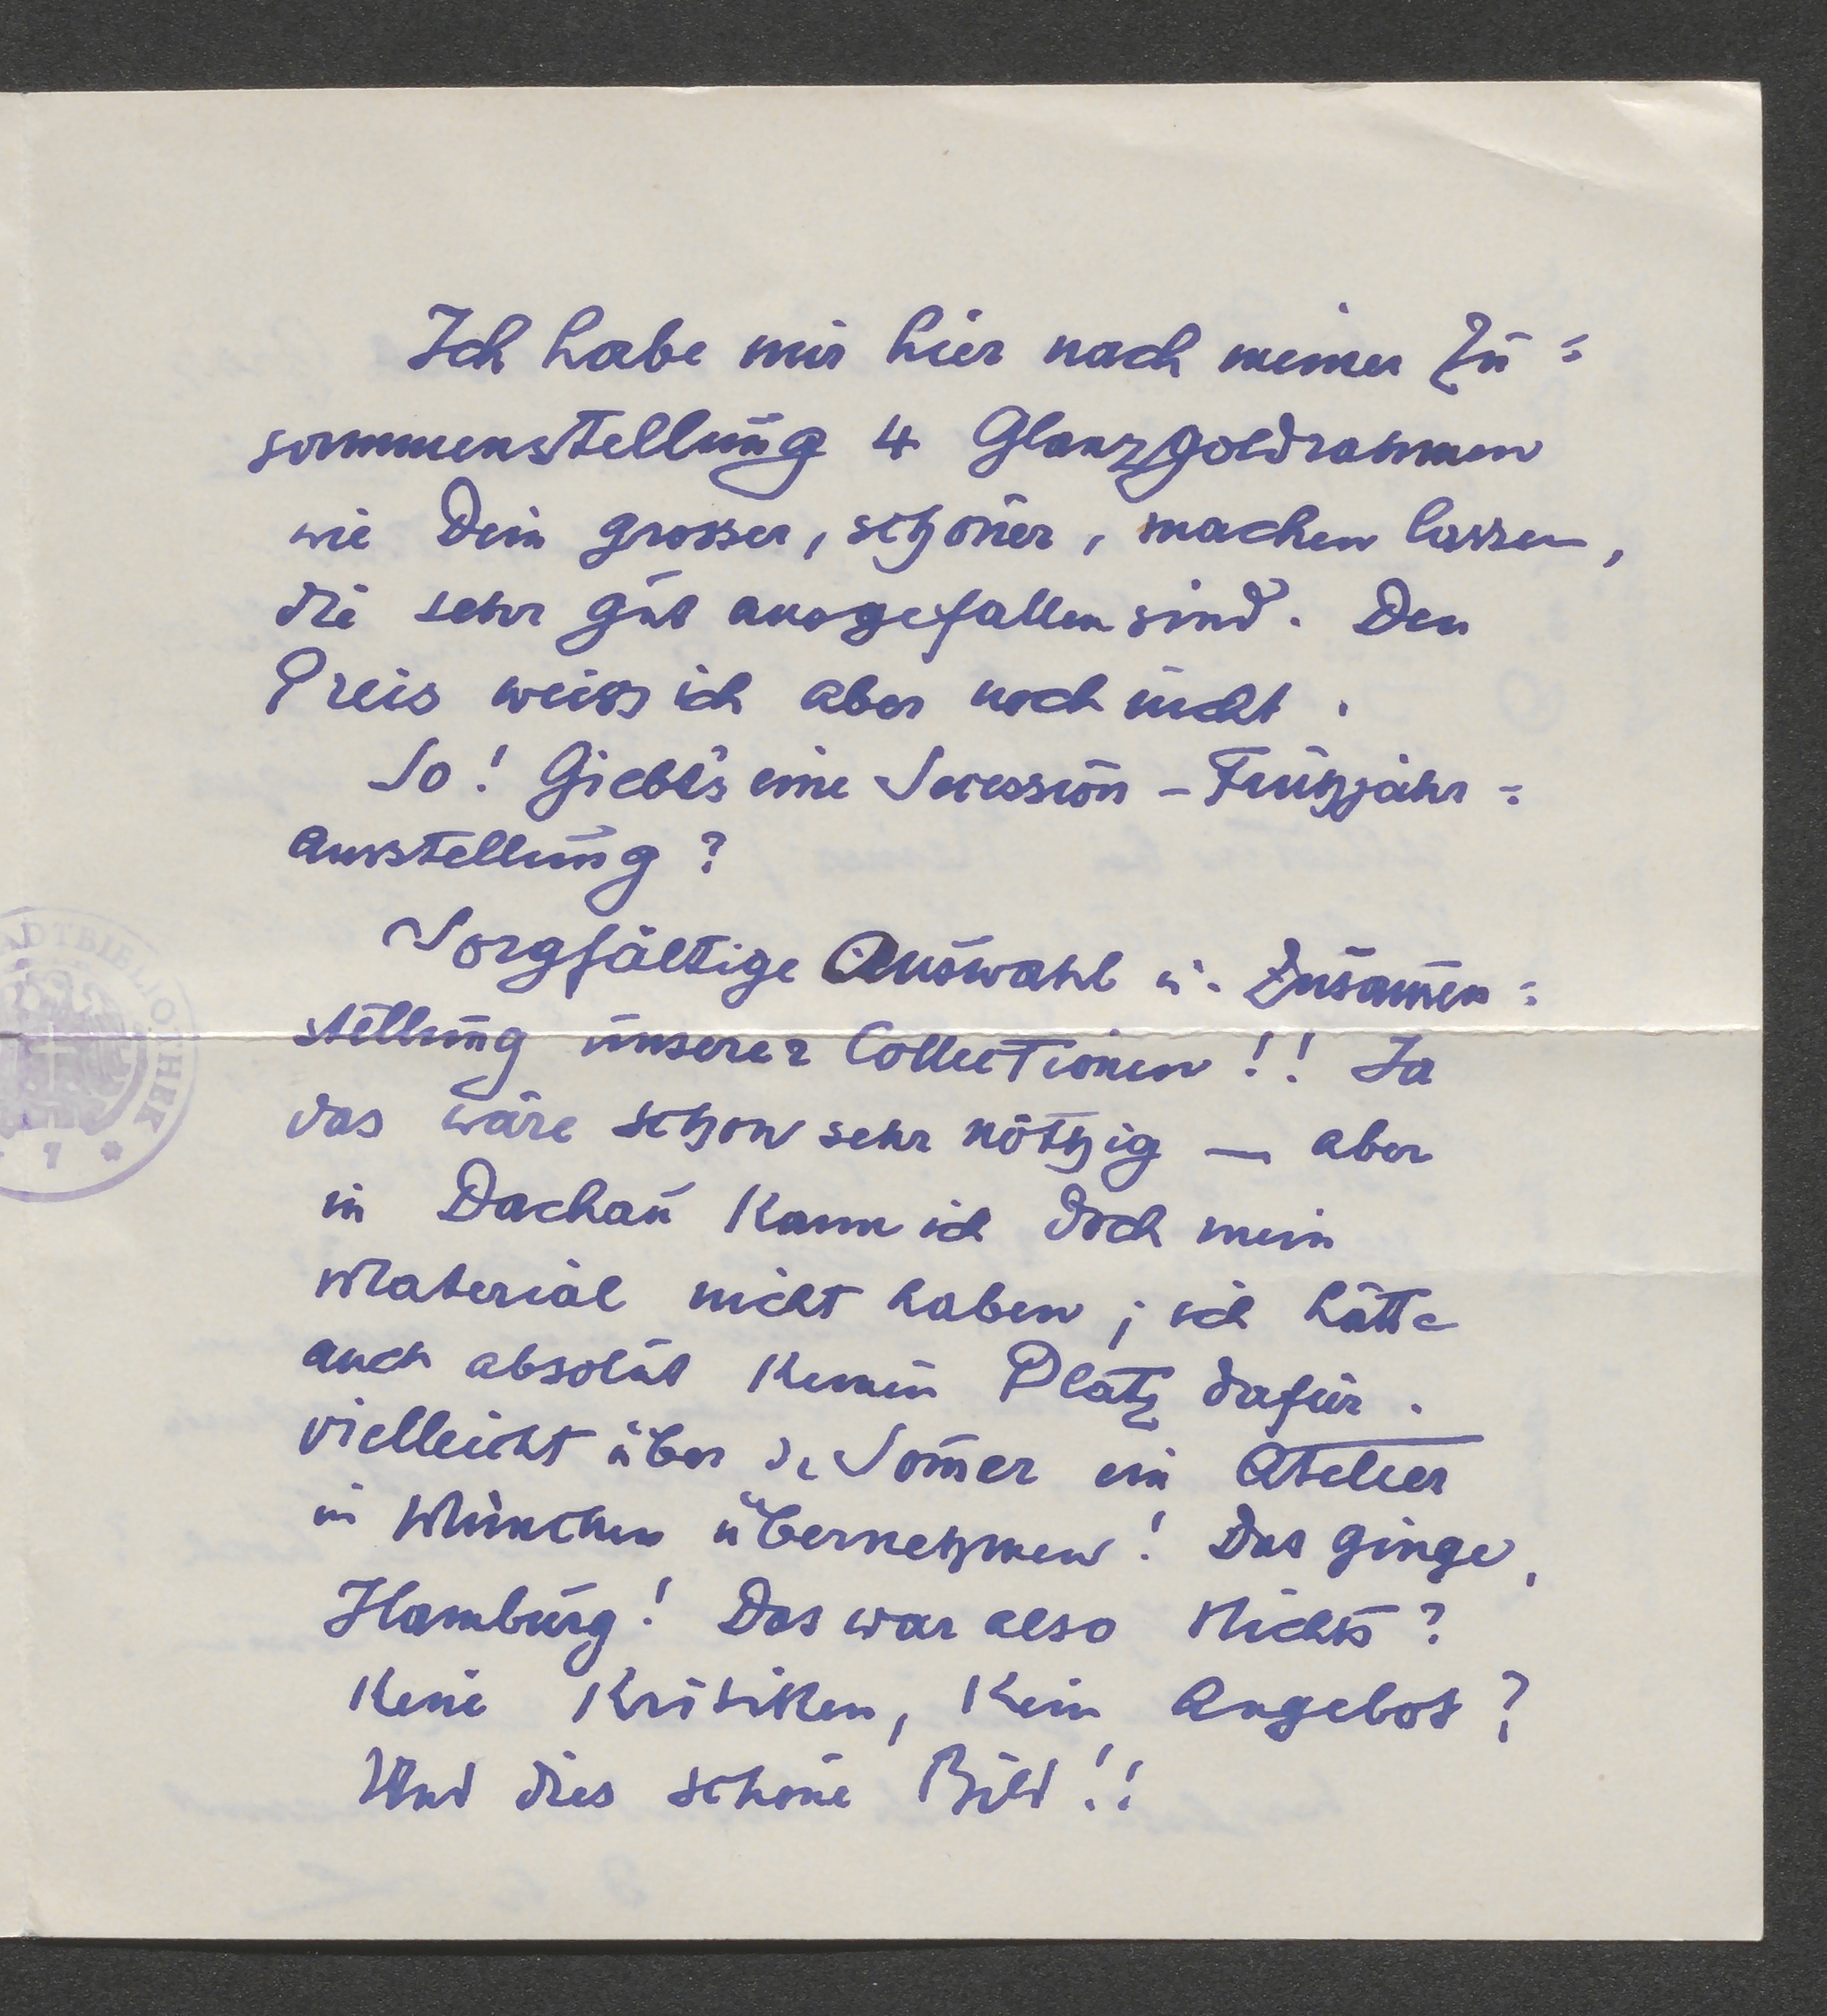 Ich habe mir hier nach meiner Zu=
sammenstellung 4 Glanzgoldrahmen
wie Dein grosser, schöner, machen lassen,
die sehr gut ausgefallen sind. Den
Preis weiss ich aber noch nicht.
So! Giebt's eine Secession-Frühjahr=
ausstellung?
Sorgfältige Auswahl u. Zusam̅en=
stellung unserer Collectionen!! Ja
das wäre schon sehr nöthig — aber
in Dachau kann ich doch mein
Material nicht haben; ich hätte
auch absolut keinen Platz dafür.
vielleicht über d. Som̅er ein Atelier
in München übernehmen! Das ginge,
Hamburg! Das war also Nichts?
Keine Kritiken, kein Angebot?
Und dies schöne Bild!!
ADTBIBLIOTHEK
7 *